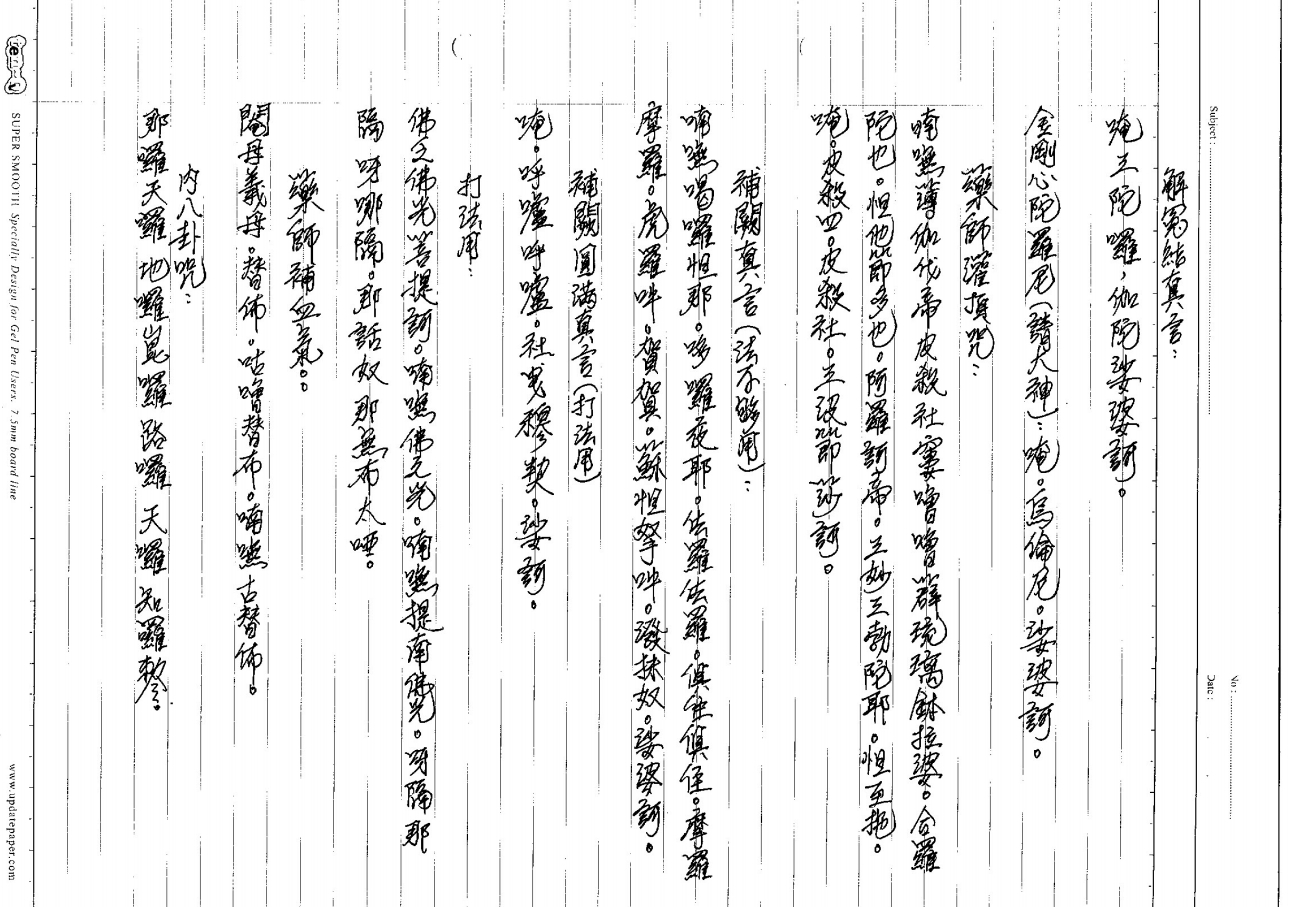 Subject:
No:
Date:
解冤結真言：
唵三陀囉，伽陀娑婆訶。
金剛心陀羅尼(請大神)：唵。烏倫尼。娑婆訶。
藥師灌頂咒：
喃嘸薄伽伐帝皮殺社窶嚕嚕薜琉璃鉢拉婆。合羅
陀也。怛他節多也。阿羅訶帝。三妙三勃陀耶。怛至拖。
唵。皮殺四。皮殺社。三波節莎訶。
補闕真言(法不夠用)：
喃嘸喝囉怛那。哆囉夜耶。佉羅佉羅。俱住俱住。摩羅
摩羅。虎羅吽。賀賀。蘇怛拏吽。潑抹奴。娑婆訶。
補闕圓滿真言(打法用)
唵。呼嚧呼嚧。社曳穆契。娑訶。
打法用：
佛之佛光菩提訶。喃嘸佛之光。喃嘸提南佛光。呀隔那
隔呀哪隔。那話奴那無布太哂。
藥師補血氣。。
閣母義母。替佈。咕嚕替布。喃嘸古替佈。
內八卦咒：
那囉天囉地囉崑囉路囉天囉知囉嫯。
SUPER SMOOTH Specially Design for Gel Pen Users. 7.5mm board line
www.updatepaper.com